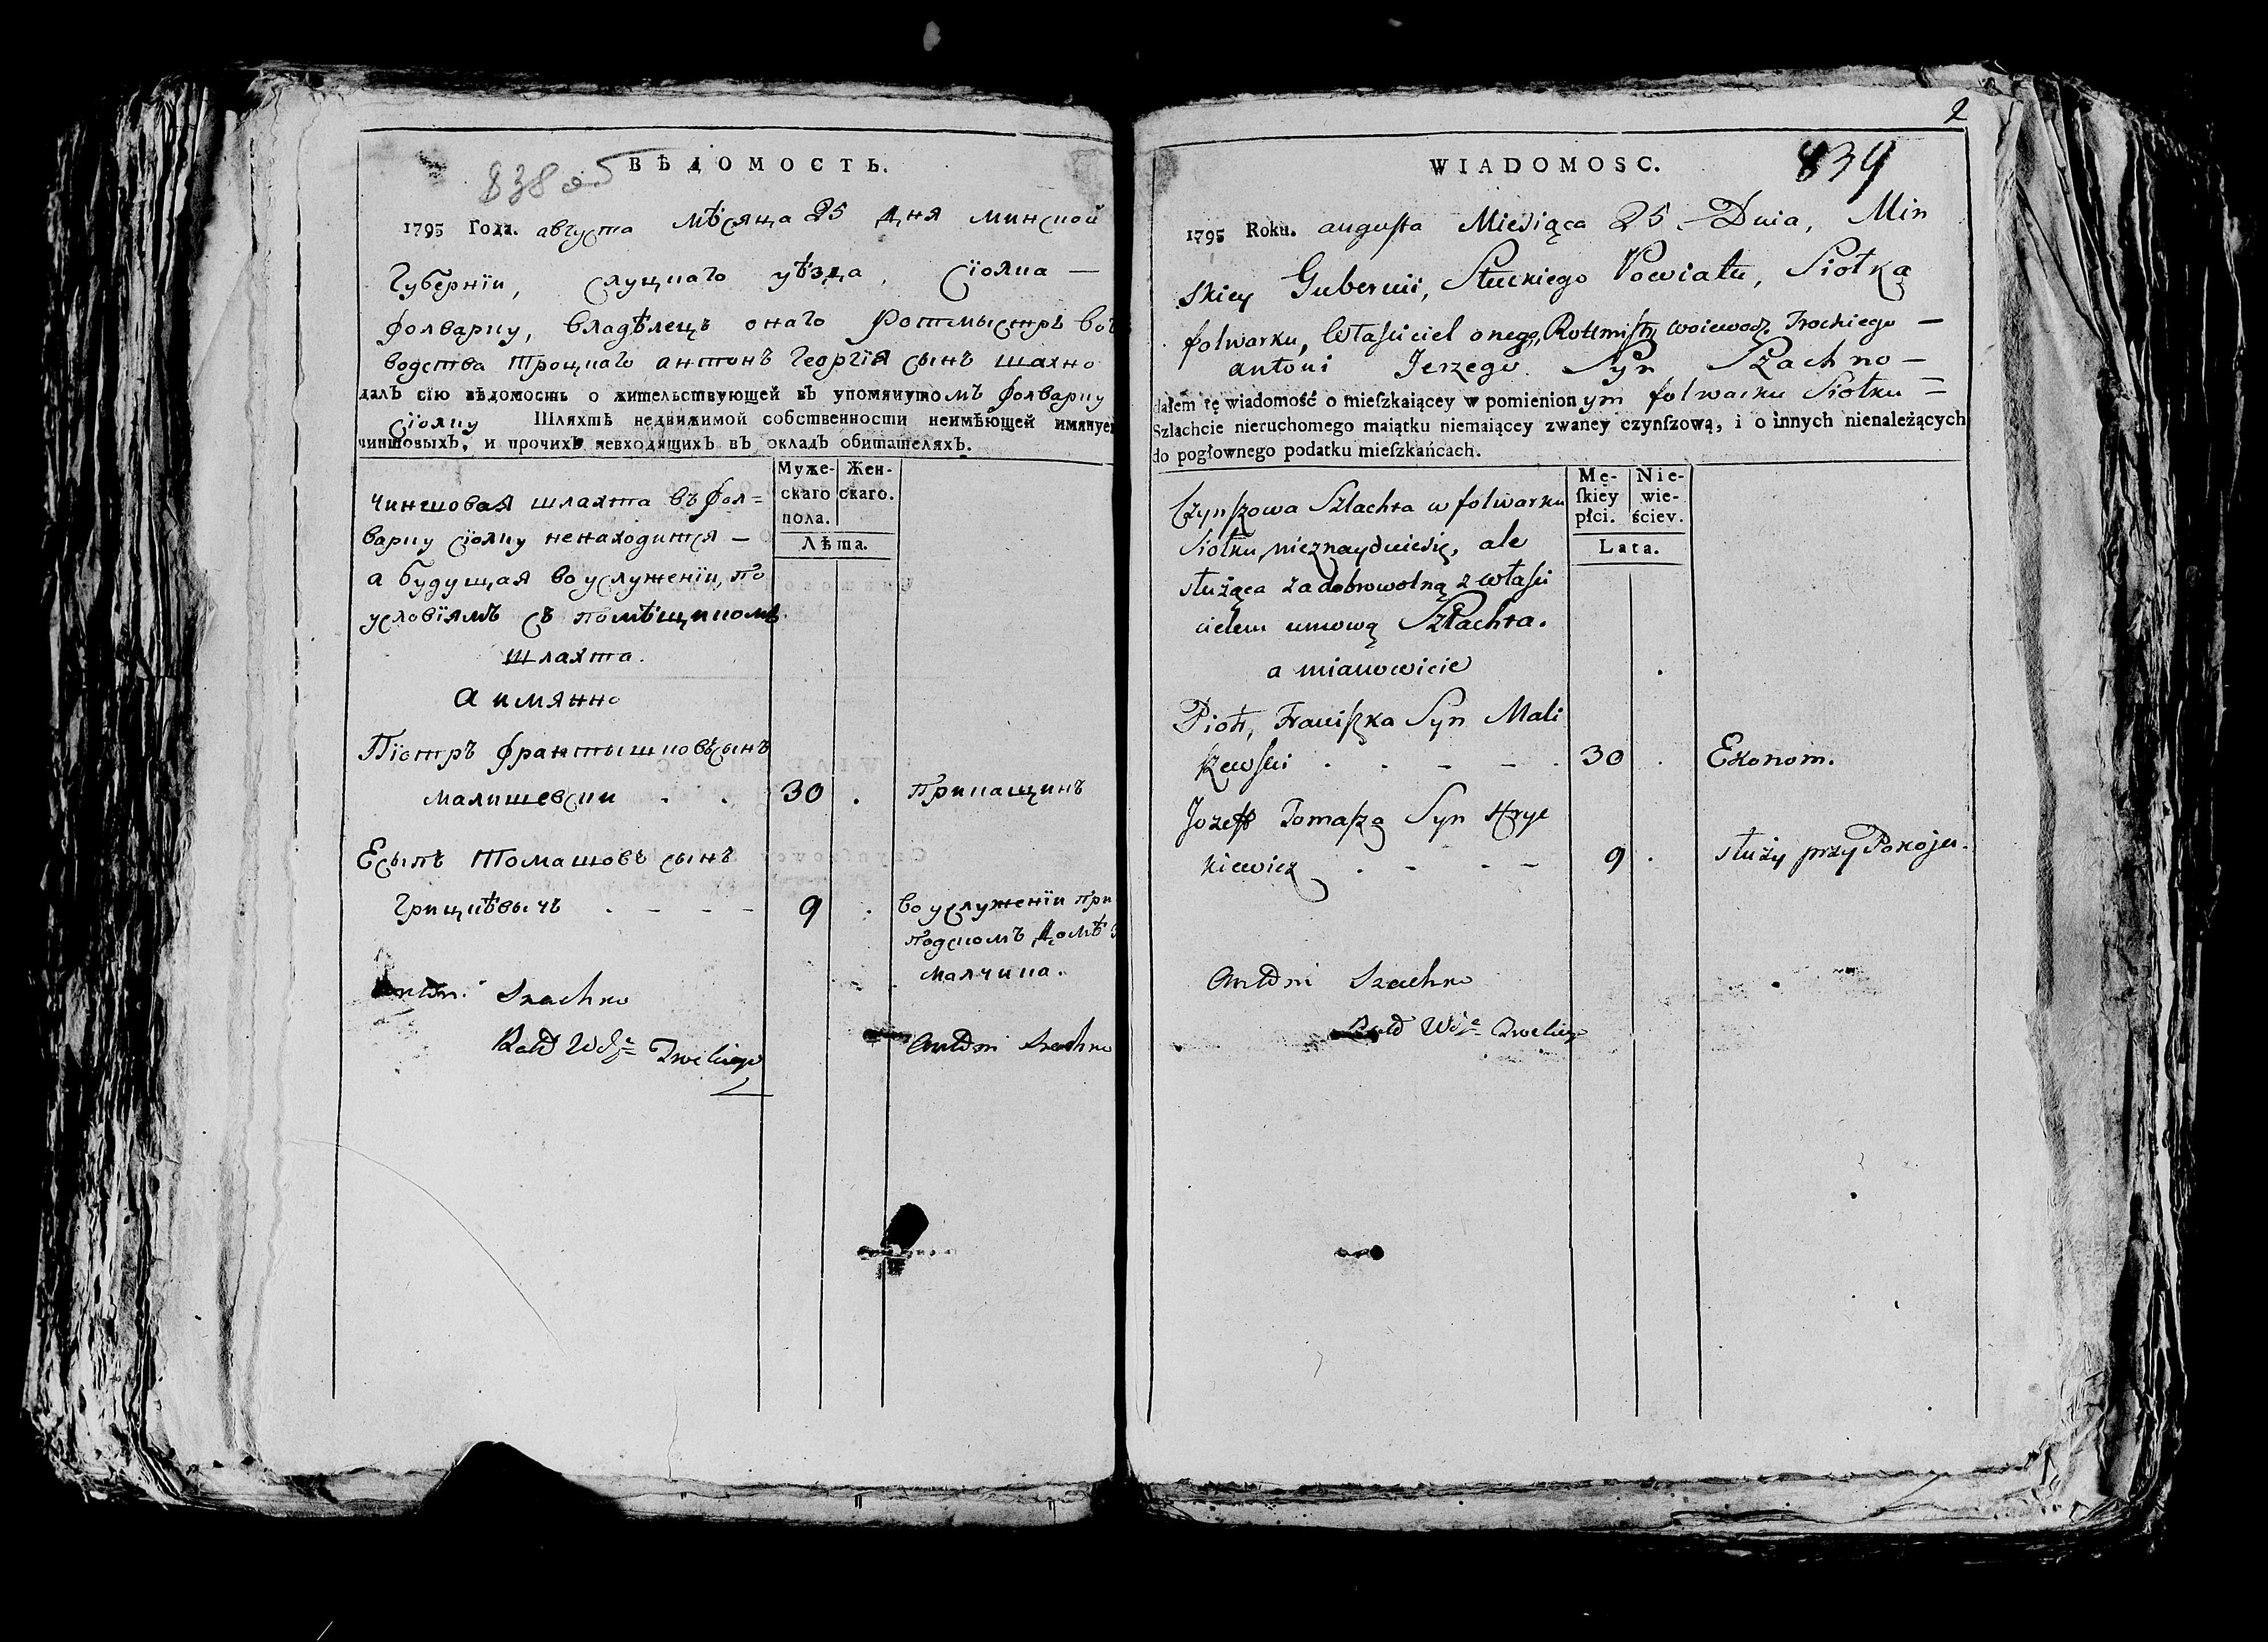 838 об
ВѢДОМОСТЬ.
1795 Года. августа мѣсяца 25 дня минской
Губернїи, слуцкаго уѣзда, сїолка —
фолварку, владѣлецъ онаго Ротмыстръ вое
водства Троцкаго антонъ Георгїя сынъ шахно
далъ сїю вѣдомость о жительствующей въ упомянутомъ фолварку
сїолку Шляхтѣ недвижимой собственности неимѣющей имянуе
чиншовыхъ, и прочихъ невходящихъ въ окладъ обитателяхъ.
Муже- Жен-
скаго скаго.
пола.
Лѣта.
чиншовая шляхта въ фол=
варку сїолку ненаходится —
а будущая во услуженїи, по
условїямъ съ помѣщикомъ
шляхта.
а имянно
Пїотръ франтышковъ сынъ
малишевски . . 30 . Прикащикъ
Есыпъ Томашовъ сынъ
Грицкѣвычъ . - - - 9 . во услуженїи при
подскомъ домѣ
малчика.
Antoni Szachno
Antoni Szachno
2
839
WIADOMOSC.
1795 Roku. augusta Miesiąca 25 Dnia, Min
skiey Gubernii, Słuckiego Powiatu, Siołka
folwarku, Własciciel onego, Rottmistrz woiewodz. Trockiego —
antoni Jerzego Syn Szachno —
dałem tę wiadomość o mieſzkaiącey w pomienionym folwarku Siołku =
Szlachcie nieruchomego maiątku niemaiącey zwaney czynſzową, i o innych nienależących
do pogłownego podatku mieſzkańcach.
Mę- Nie-
ſkiey wie-
płci. ściey.
Lata.
Czynszowa Szlachta w folwarku
Siołku nieznayduiesię, ale
służąca za dobrowolną z własci
cielem umową Szlachta.
a mianowicie
Piotr, Franiszka Syn Mali
szewski . . - - . 30 . Ekonom.
Jozeff Tomasza Syn Hryc
kiewicz . - - - 9 . służy przy Pokoju.
Antoni Szachno